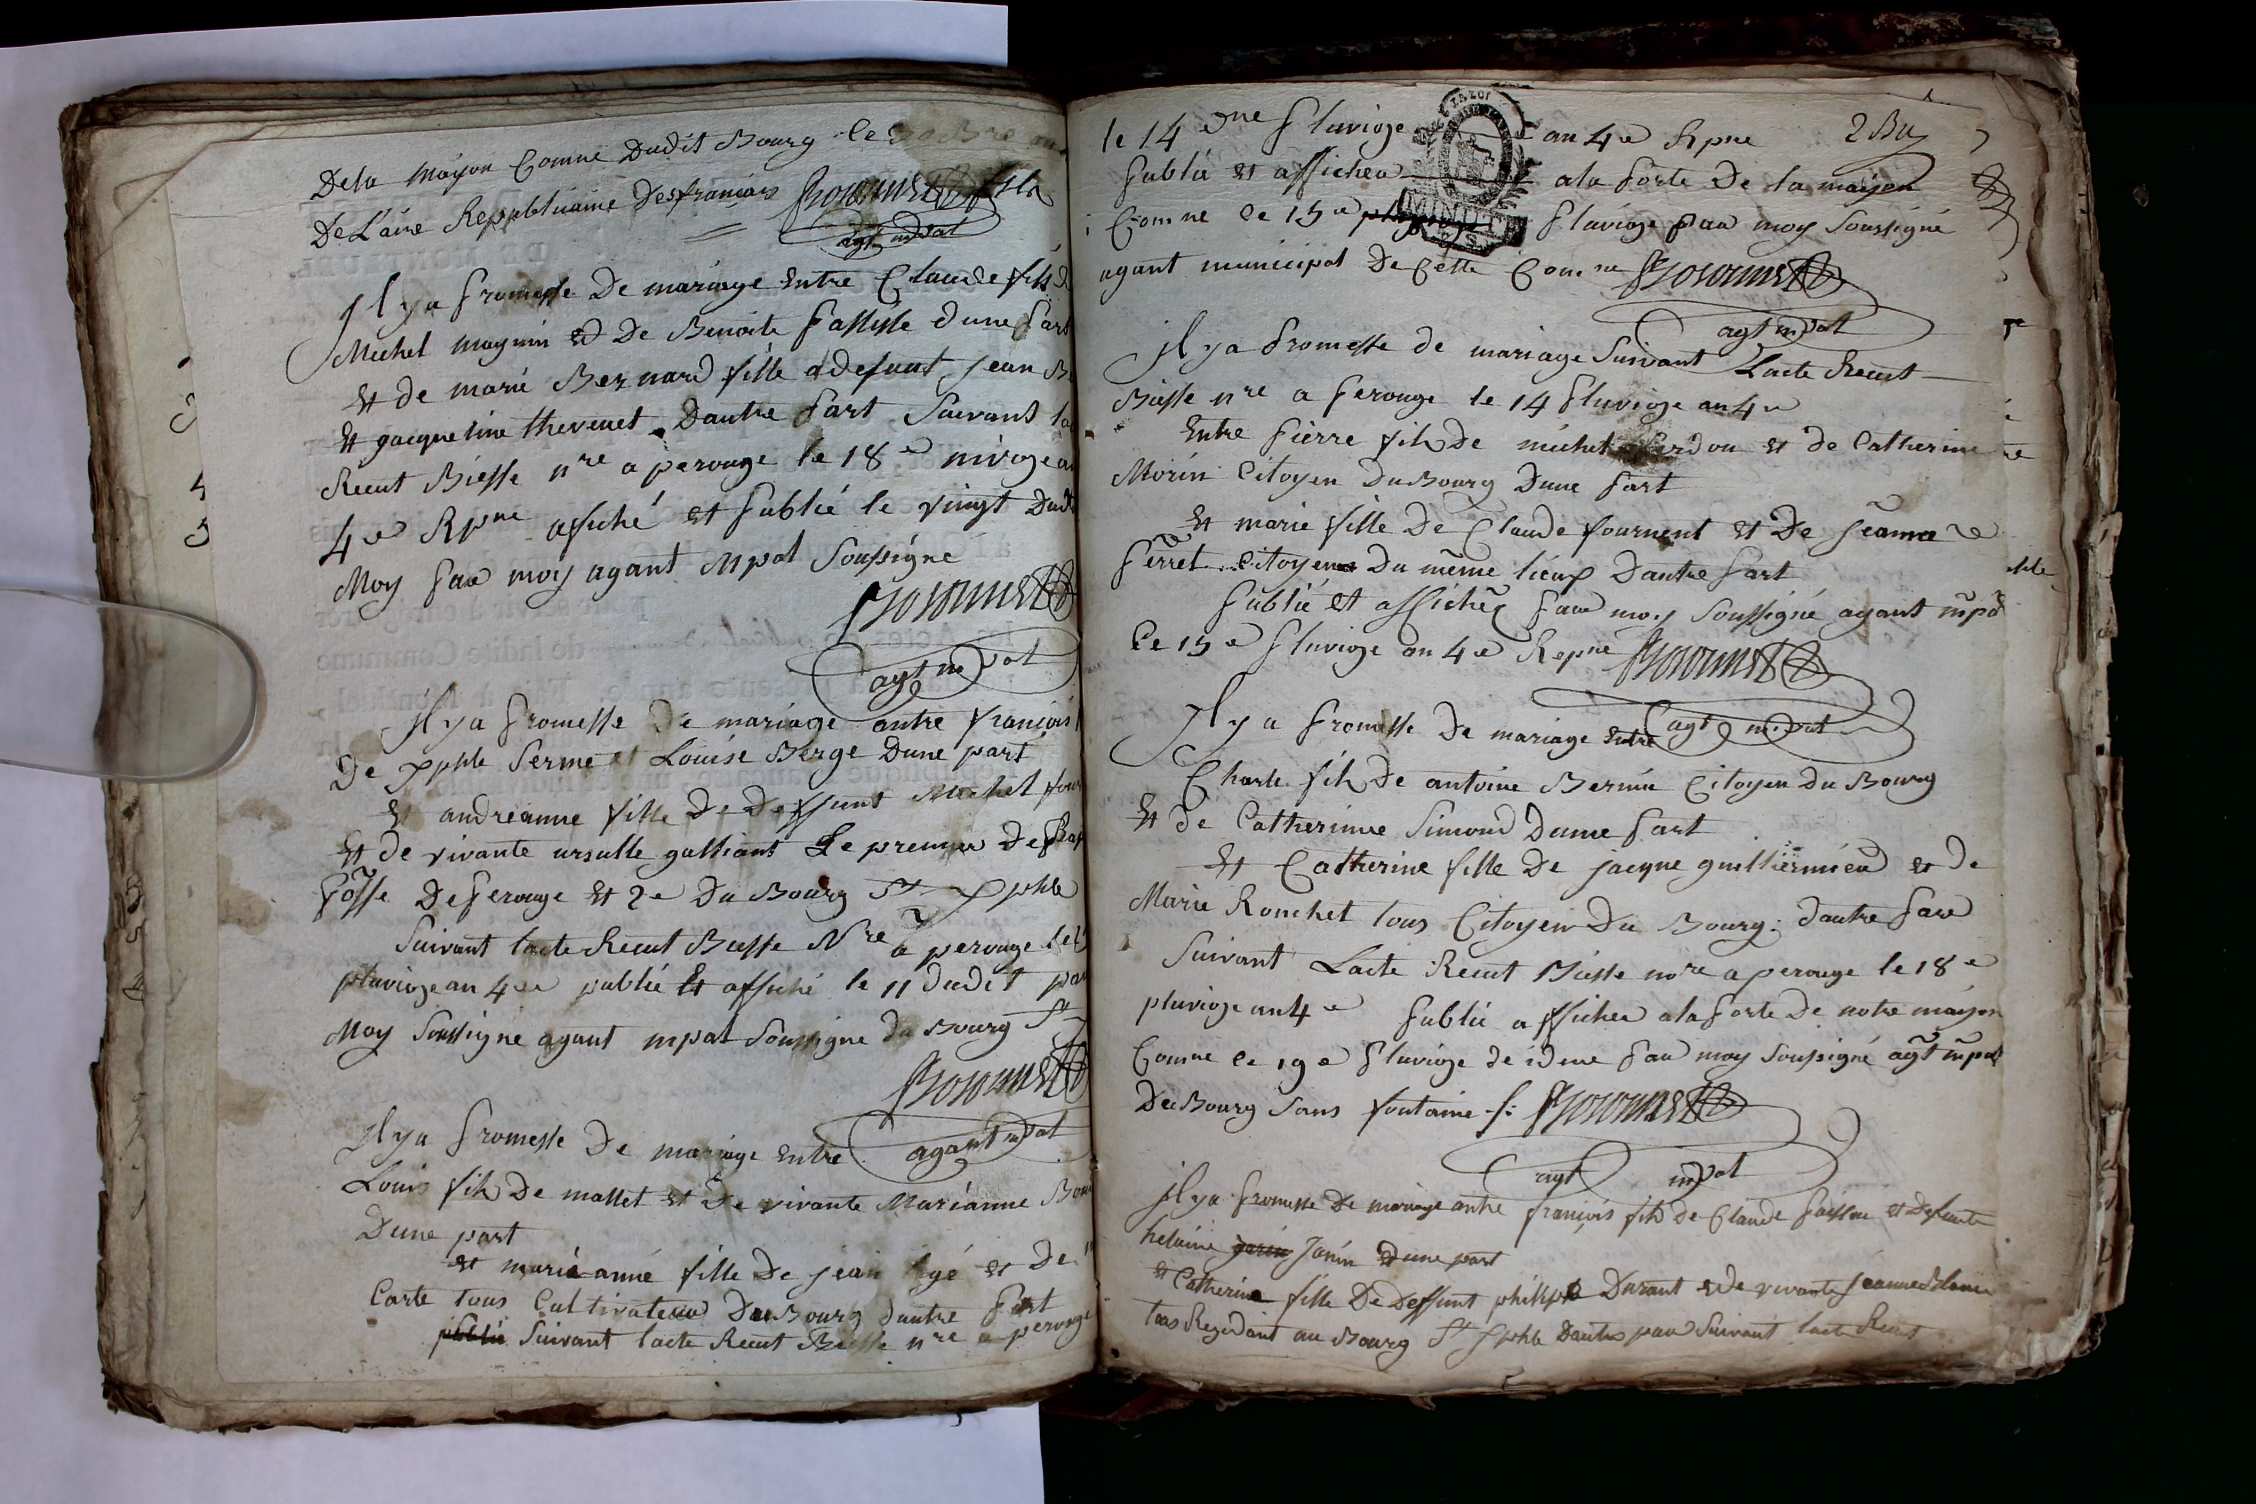 De la mayon Comne Dudit Bourg le
De L'aire Republicaine Desfrancais
agt mpal
Il y a promesse De mariage Entre Claude fils
Michel magnin Et De Benoite d'une part
Et de marie Bernard fille a defunt Jean
Et jacqueline thevenet Dautre part Suivant
Recut Biesse nre a perouge le 18e nivoge
4e Rpne afiché et publié le vingt Dud
Moy par moy agant Mpal Soussigné
agt mpal
Il y a promesse De mariage antre francois
De Louise Berge Dune part
Et andréanne fille De Deffunt Michel
Et de vivante ursulle galliant Le premier De
De perouge Et 2e Du Bourg St xpphle
Suivant lacte Recut Biesse Nre a perouge le
pluvioge an 4e publié Et affiché le 11 dudit par
Moy Soussigne agant mpal Soussigne du Bourg St
agant mpal
Il y a promesse De mariage Entre
Louis fils De mallet et De vivante Marianne
Dune part
et marie anné fille De jean et De
Carte tous Cultivateur Du Bourg dautre part
publié Suivant lacte Recut Biesse nre a perouge
le 14 eme pluvioge an 4e Rpne
LA LOI
publié Et affichea ala porte De la mayon
Comne le 15e pluvioge par moy Soussigné
MINUT
agant municipal De Cette Comne
agt mpal
Il y a promesse de mariage Suivant Lacte Recut
Biesse nre a perouge le 14 pluvioge an 4e
Entre pierre fils De michel et de Catherine
Morin Citoyen Du Bourg Dune part
Et marie fille De Claude fournent Et De Jeanne
perret Citoyen Du même lieux Dautre part
publié et affichéz par moy Soussigné agant mpal
le 15e pluvioge an 4e Repne
agt mpal
Il y a promesse De mariage Entre
Charle fils De antoine Bernin Citoyen Du Bourg
Et De Catherinne Simond Dune part
Et Catherine fille De jacque guilliermieud et de
Marie Ronchet tous Citoyen Du Bourg dautre part
Suivant Lacte Recut Biesse nore a perouge le 18e
pluvioge an 4e publié affichea ala porte De notre mayon
Comne le 19e pluvioge de idme par moy Soussigné agt mpal
Du Bourg Sans fontaine
agt mpal
Il y a promesse De mariage antre francois fils de Claude et Defunte
helaine Janin Dune part
et Catherine fille De Deffunt philipe Durant et De vivante
tous Regidant au Bourg St xpphle Dautre par Suivant lacte Recut